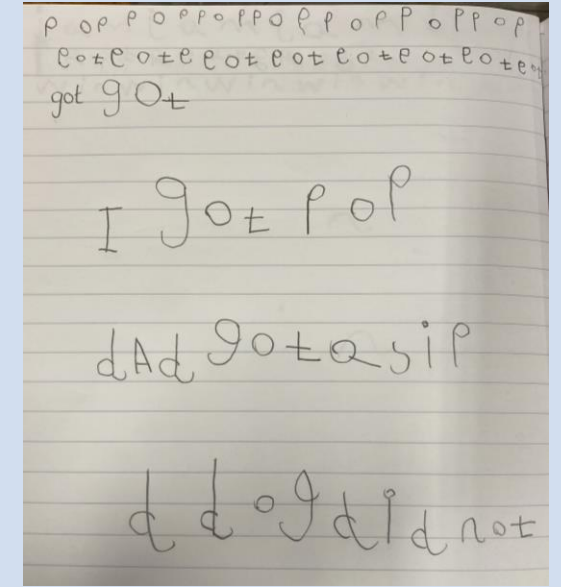 p op p p o p p o p p o p p o p p o p p o p
e o t e o t e e o t e o t e o t e o t e o t e o
got got
I got pop
dAd got a sip
d dog did not